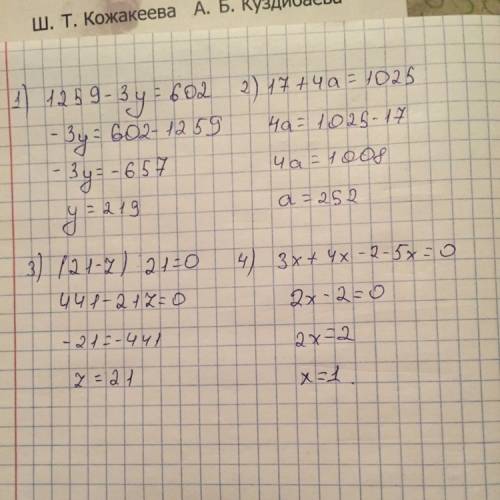 Ш. Т. Кожакеева А. Б. Куздибаева
1) 1259-3y=602
-3y=602-1259
-3y=-657
y=219
2) 17+4a=1025
4a=1025-17
4a=1008
a=252
3) (21-z) 21=0
441-21z=0
-21=-441
z=21
4) 3x+4x-2-5x=0
2x-2=0
2x=2
x=1.